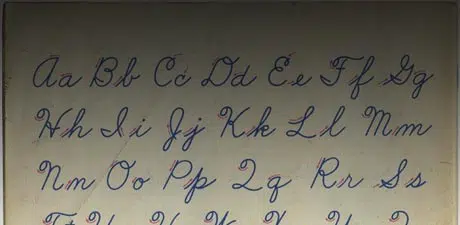 Aa Bb Cc Dd Ee Ff Gg
Hh Ii Jj Kk Ll Mm
Nn Oo Pp Qq Rr Ss
Tt U V W X Y Z